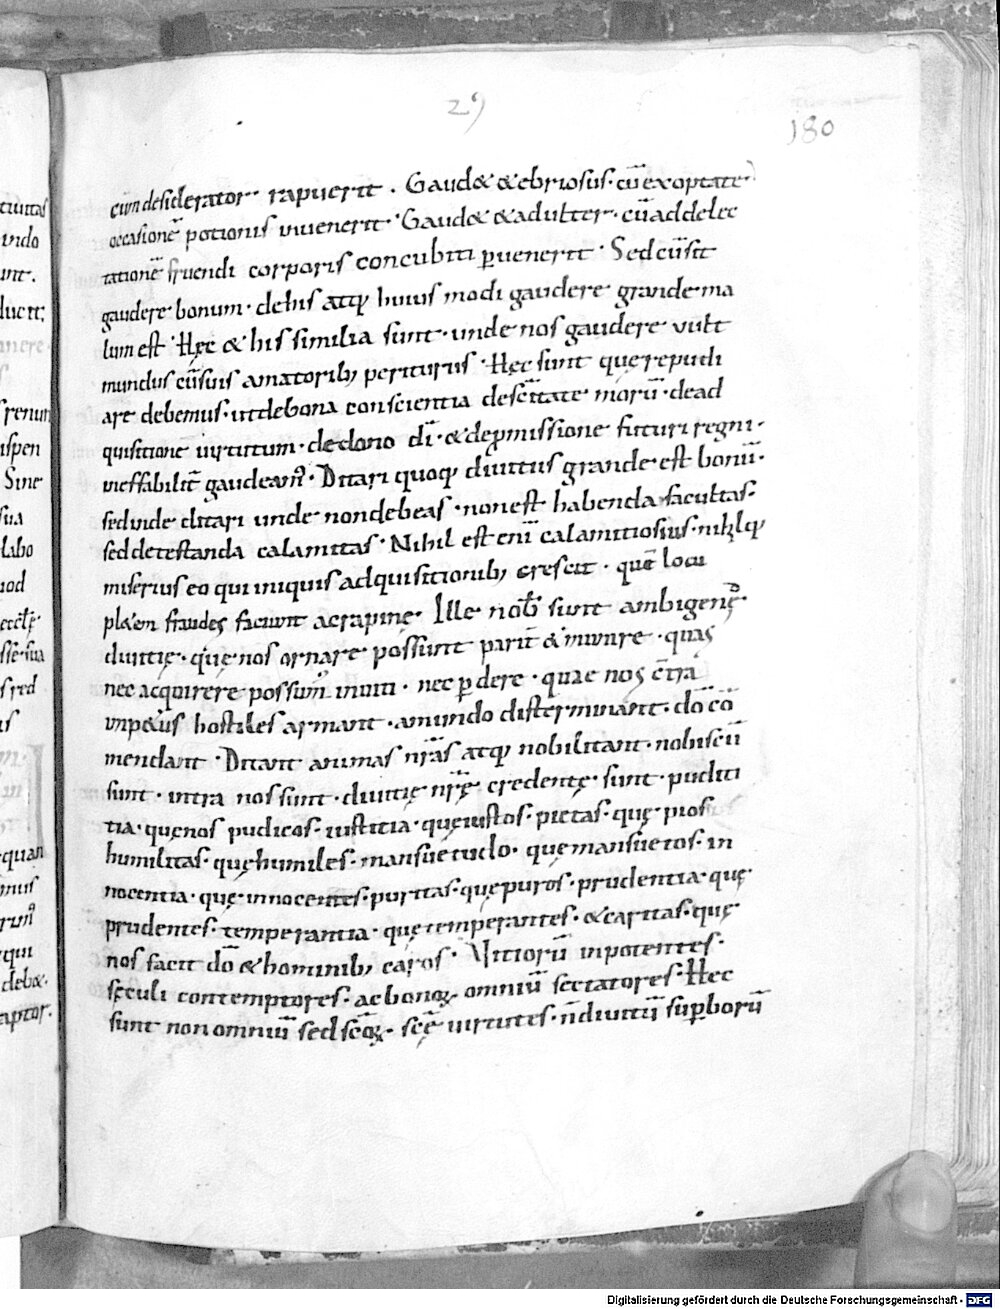 29
180
cum desiderator rapuerit . Gaud& & ebriosus . cū exoptate
occasionē potionis inuenerit . Gaud& & adulter . cū ad delec
tationē fruendi corporis concubiti ꝑuenerit . Sed cū sit
gaudere bonum . de his atq; huius modi gaudere grande ma
lum est . Hęc & his similia sunt . unde nos gaudere uult
mundus cū suis amatorib; periturus . Hęc sunt quę repudi
are debemus . ut de bona conscientia de sc̄itate morū . de ad
quisitionē uirtutum . de dono dī . & de ꝓmissione futuri regni .
ineffabilit̄ gaudeam᷒ . Ditari quoq; diuitiis grande est bonū .
sed inde ditari unde non debeas . non est habenda facultas .
sed detestanda calamitas . Nihil est enī calamitiosius . nihilq;
miserius eo qui iniquis adquisitionib; crescit . quē locu
pl&em fraudes faciunt ac rapinę . Ille nob̄ sunt ambigend᷒
diuitię . quę nos ornare possunt parit̄ & munire . quas
nec acquirere possum᷒ inuiti . nec ꝑdere . quae nos c̄tra
imp&us hostiles armant . a mundo disterminant . dō cō
mendant . Ditant animas nr̄as atq; nobilitant . nobiscū
sunt . intra nos sunt . diuitię nr̄ę credentę sunt . pudici
tia . quę nos pudicos . iustitia . quę iustos . pietas . quę pios
humilitas . quę humiles . mansuetudo . quę mansuetos . in
nocentia . quę innocentes . puritas . quę puros . prudentia . quę
prudentes . temperantia . quę temperantes . & caritas . quę
nos facit dō & hominib; caros . Vitiorū inpotentes .
sęculi contemptores . ac bonoꝝ omniū sectatores . Hęc
sunt non omniū sed sc̄oꝝ . sc̄ę uirtutes . n̄ diuitū suꝑborū
Digitalisierung gefördert durch die Deutsche Forschungsgemeinschaft - DFG